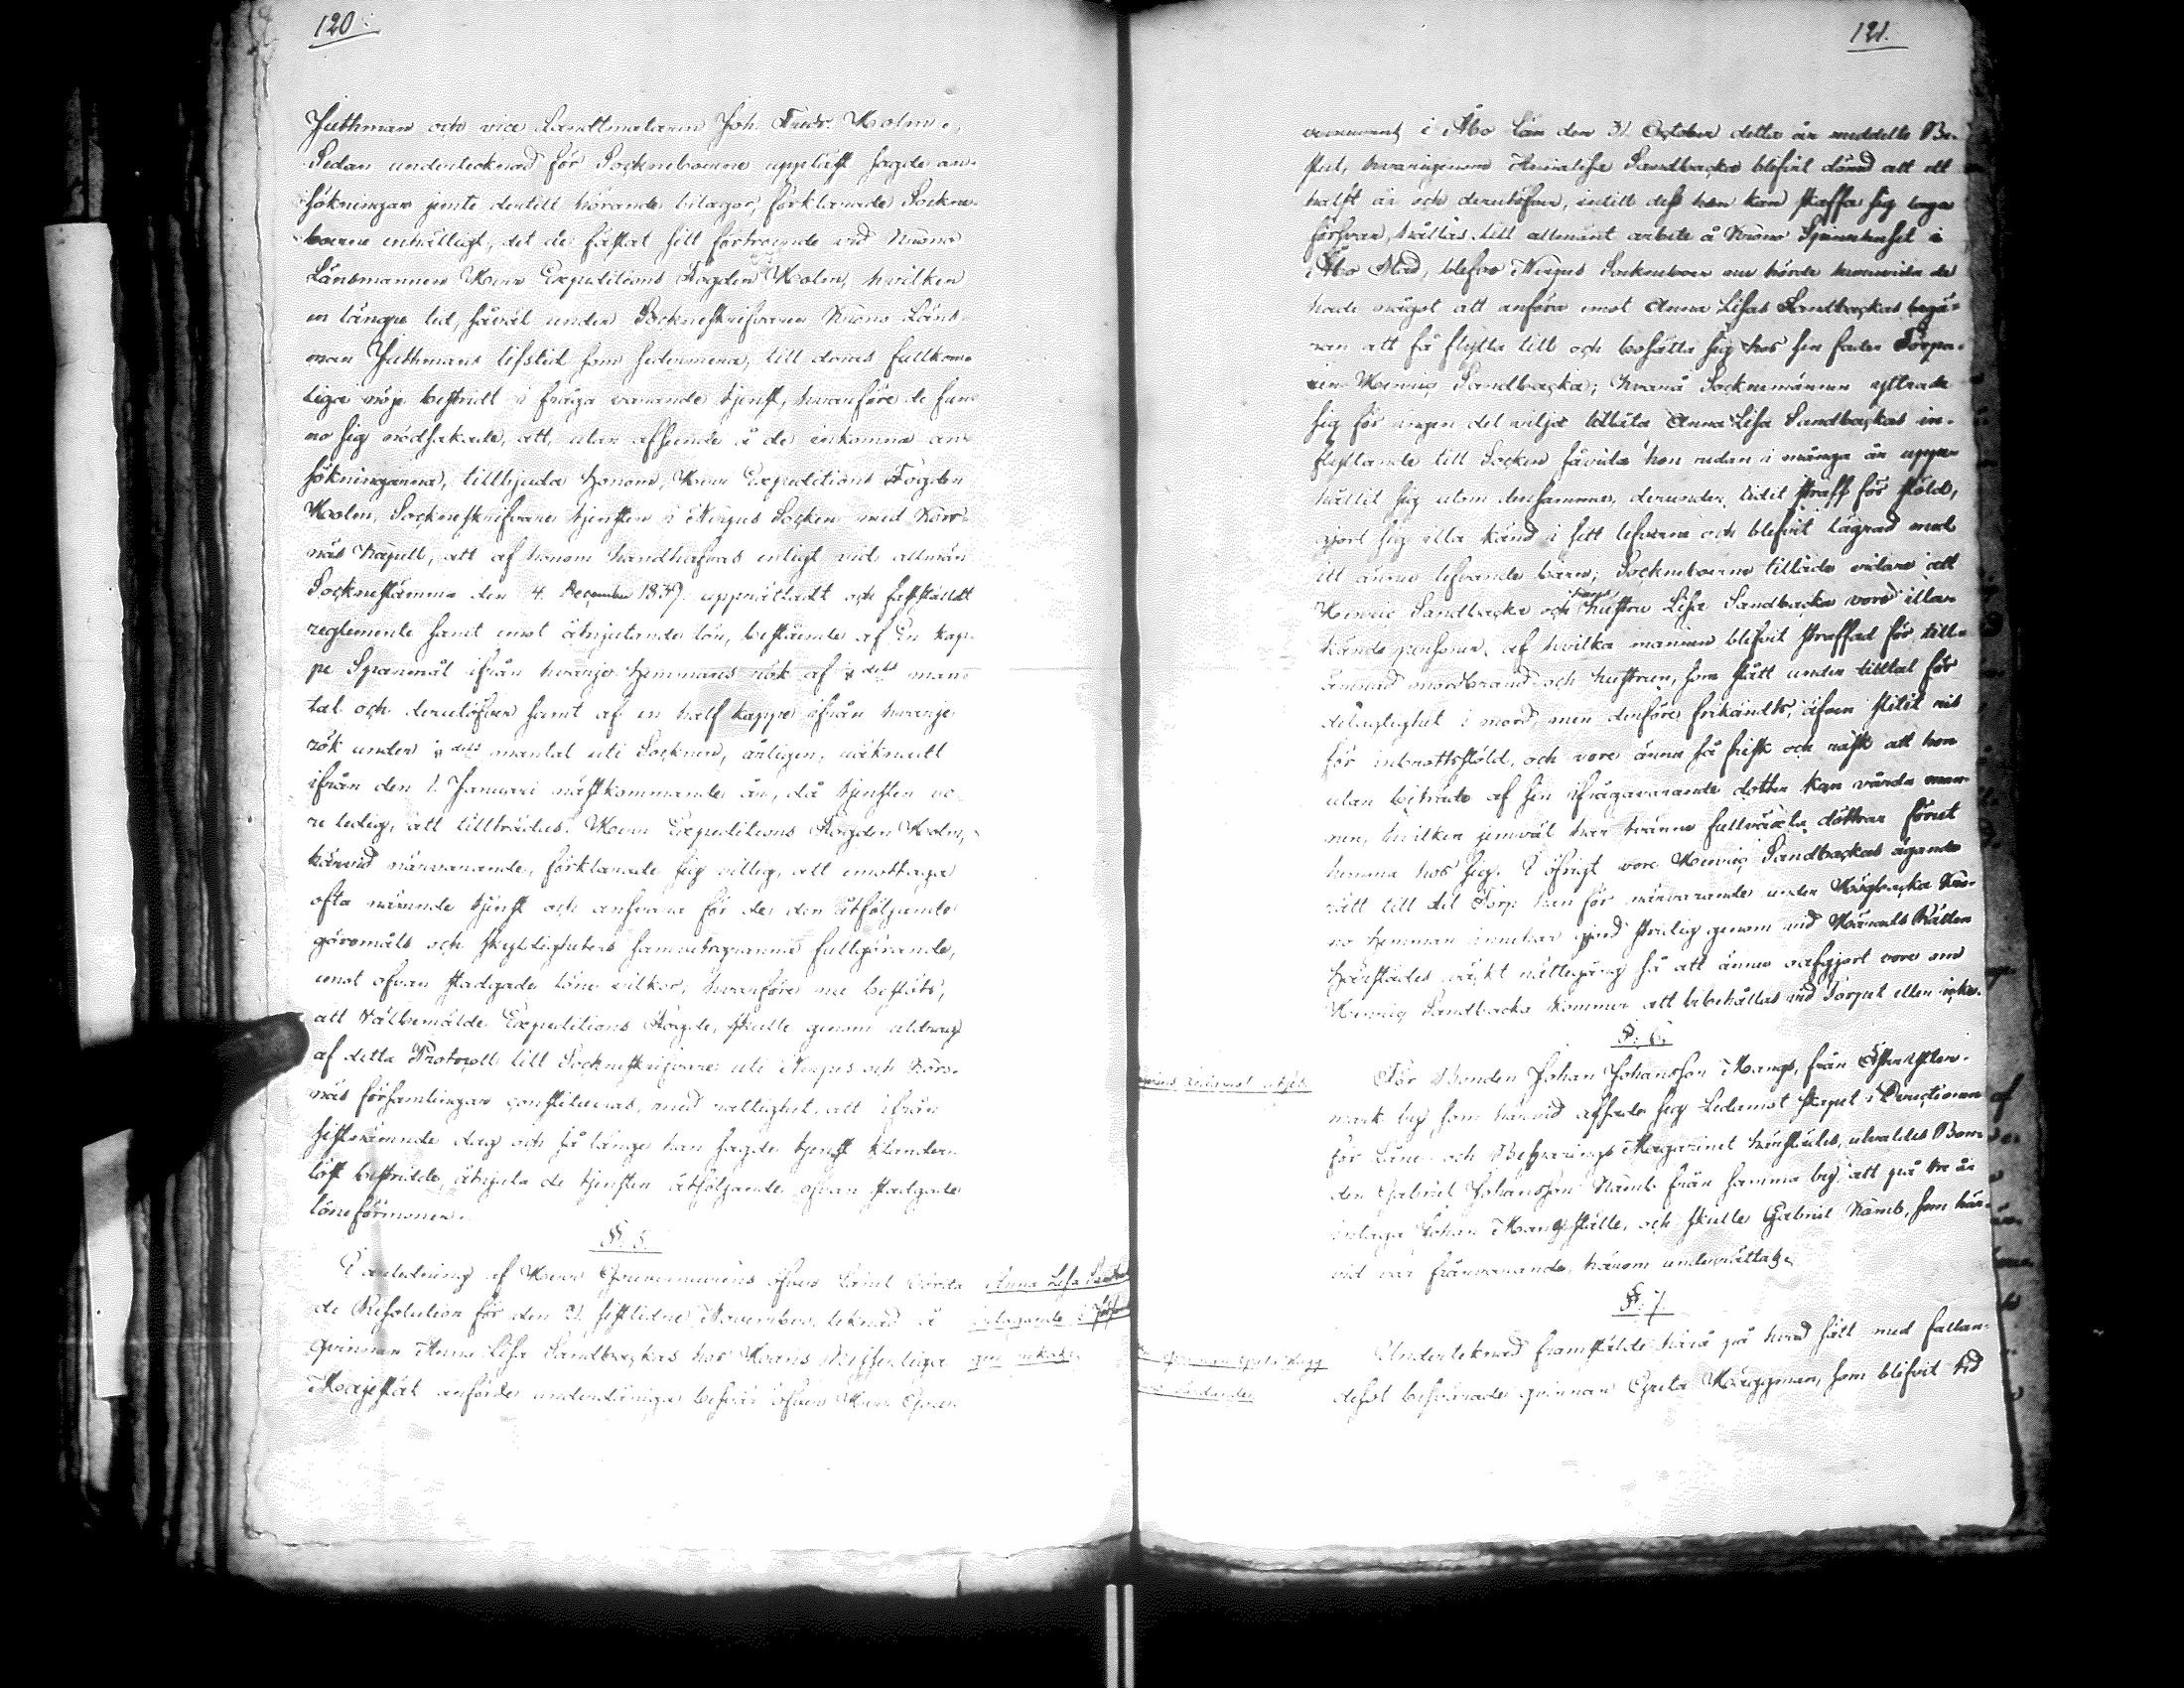 120.
Juthman och vice Landtmätaren Joh. Fredr. Holm.
Sedan undertecknad för Sockneboerne uppläst sagde an-
sökningar jemte dertill hörande bilagor, förklarade Sockne-
boerne enhälligt, det de fästat sitt förtroende vid Krono
Länsmannen Herr Expeditions Fogden Holm, hvilken
en längre tid, såväl under Sockneskrifvaren Krono Läns-
man Juthmans lifstid som sedermera, till deras fullkom-
liga nöje bestridt i fråga varande tjenst, hvarföre de fun-
no sig nödsakade, att, utan afseende å de inkomna an-
sökningarna, tillbjuda honom, Herr Expeditions Fogden
Holm, Sockneskrifvare tjensten i Nerpes Socken med Kors-
näs Kapell, att af honom handhafvas enligt vid allmän
Socknestämma den 4. December 1837 upprättadt och fastställdt
reglemente samt emot åtnjutande lön, bestående af En kap-
pe Spanmål ifrån hvarje hemmans rök af dels man-
tal och derutöfver samt af en half kappe ifrån hvarje
rök under dels mantal uti Socknen, årligen, räknadt
ifrån den 1. Januari nästkommande år, då tjensten vo-
re ledig, att tillträdas. Herr Expeditions Fogden Holm,
härvid närvarande, förklarade sig villig, att emottaga
ofta nämnde tjenst och ansvara för de den åtföljande
göromåls och skyldigheters samvetsgranna fullgörande,
emot ofvan stadgade löne vilkor; hvarföre nu beslöts,
att Välbemälde Expeditions Fogde, skulle genom utdrag
af detta Protocoll till Sockneskrifvare uti Nerpes och Kors-
näs församlingar constitueras, med rättighet, att ifrån
sistnämnde dag och så länge han sagde tjenst klander-
löst bestridde, åtnjuta de tjensten åtföljande ofvan stadgade
löneförmoner.
§. 5.
I anledning af Herr Gouverneurens öfver Länet
de Resolution för den 21. sistlidne November, teknad å
qvinnan Anna Lisa Sandbackas hos Hans Kejserliga
Majestät anförde underdåniga besvär öfver Herr Gou-
Anna Lisa
intagande i
gen nekades
121.
i Åbo län den 31 October detta år meddelte Be-
slut, hvarigenom Annalisa Sandbacka blefvit dömd att ett
halft år och derutöfver, intill dess hon kan skaffa sig laga
försvar, hållas till allmänt arbete å Krono Spinnhuset i
Åbo Stad, blefvo Nerpes Sockneboer nu hörde huruvida de
hade något att anföra emot Anna Lisas Sandbackas begä-
ran att få flytta till och bosätta sig hos sin fader Torpa-
ren Henric Sandbacka; hvarå Socknemännen yttrade
sig för ingen del vilja tillåta Anna Lisa Sandbackas in-
flyttande till Socken såvida hon redan i många år uppe-
hållit sig utom densamma, derunder lidit straff för stöld,
gjort sig illa känd i sitt lefverne och blefvit lägrad med
ett ännu lefvande barn; Sockneboerne tillade vidare att
Henric Sandbacka och hans hustru Lisa Sandbacka vore illa
kände personer, af hvilka mannen blifvit straffad för till-
ämnad mordbrand och hustrun, som stått under tilltal för
delaktighet i mord, men derföre frikändts, äfven slitit ris
för inbrottsstöld, och vore ännu så frisk och rask att hon
utan biträde af sin ifrågavarande dotter kan vårda man-
nen, hvilken jemväl har tvänne fullväxta döttrar förut
hemma hos sig. I öfrigt vore Henric Sandbackas ägande
rätt till det Torp han för närvarande under Högbacka Kro-
no hemman innehar gjord stridig genom vid Härads Rätten
härstädes väckt rättegång så att ännu oafgjort vore om
Henric Sandbacka kommer att bibehållas vid Torpet eller icke.
§. 6.
För Bonden Johan Johansson Mangs, från
mark by, som härvid afsade sig Ledamot skapet i Directionen
för Låne- och Besparings Magazinet härstädes, utvaldes Bon-
den Gabriel Johansson Kamb från samma by, att på tre år
intaga Johan Mangs ställe, och skulle Gabriel Kamb, som här-
vid var frånvarande, härom underrättas.
Ledamot utses
§. 7.
Underteknad framstälde härå på hvad sätt med fallan-
desot besvärade qvinnan Greta Häggman, som blifvit vid